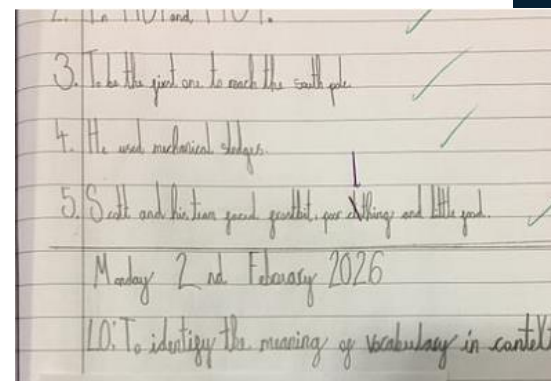 2. In 1101 and 1101.
3. To be the first one to reach the south pole
4. He used mechanical sledges.
5. Scott and his team faced frostbit, poor clothing and little food.
Monday 2nd February 2026
LO: To identify the meaning of vocabulary in